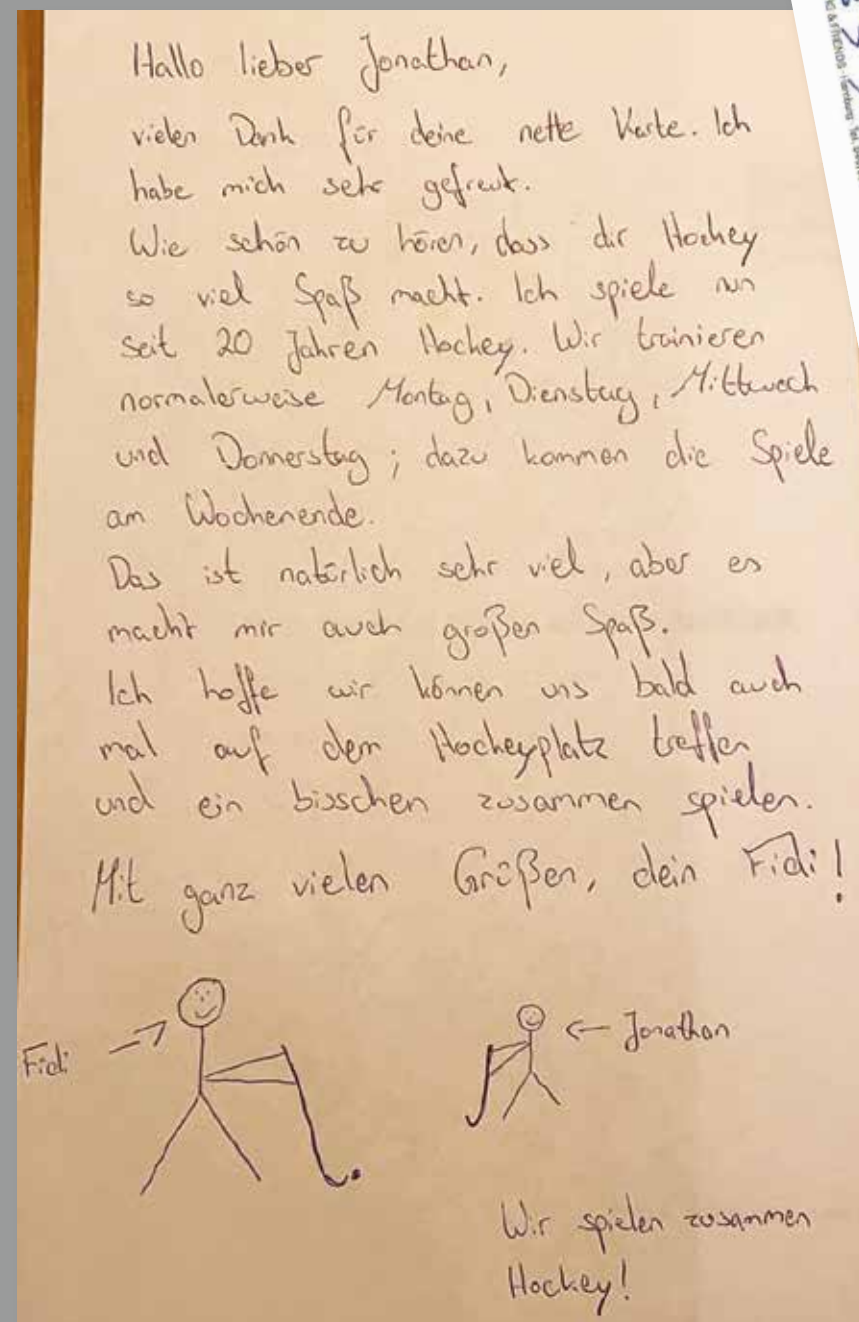 Hallo lieber Jonathan,
vielen Dank für deine nette Karte. Ich
habe mich sehr gefreut.
Wie schön zu hören, dass dir Hockey
so viel Spaß macht. Ich spiele nun
seit 20 Jahren Hockey. Wir trainieren
normalerweise Montag, Dienstag, Mittwoch
und Donnerstag; dazu kommen die Spiele
am Wochenende.
Das ist natürlich sehr viel, aber es
macht mir auch großen Spaß.
Ich hoffe wir können uns bald auch
mal auf dem Hockeyplatz treffen
und ein bisschen zusammen spielen.
Mit ganz vielen Grüßen, dein Fidi!
Fidi
Jonathan
Wir spielen zusammen
Hockey!
& FRIENDS · Hamburg Tel.